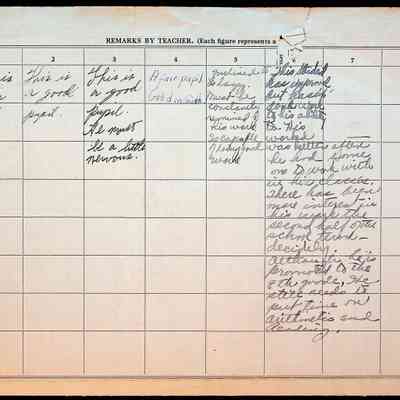 REMARKS BY TEACHER. (Each figure represents a
2
3
4
5
7
This is
a good
pupil.
This is
a good
pupil.
He must
be a little
nervous.
A fair pupil
Good in
inclined to
be lazy
must be
constantly
reminded of
his work
is capable
of very good
work
This
has improved
but
to his ability
to his
work
was better after
he had some
one to work with
in his classes.
There has been
more interest in
his work the
second half of the
school term
decidedly.
Although he is
promoted to the
8th grade, He
still needs to
put time on
arithmetic and
reading.